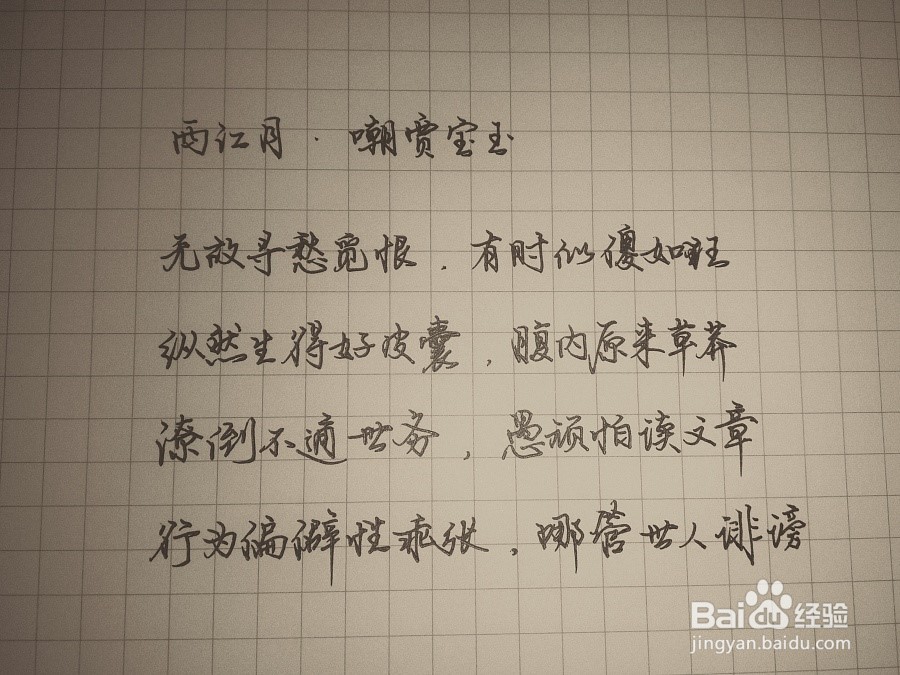 西江月·嘲贾宝玉
无故寻愁觅恨，有时似傻如狂
纵然生得好皮囊，腹内原来草莽
潦倒不通世务，愚顽怕读文章
行为偏僻性乖张，哪管世人诽谤
Baidu经验
jingyan.baidu.com